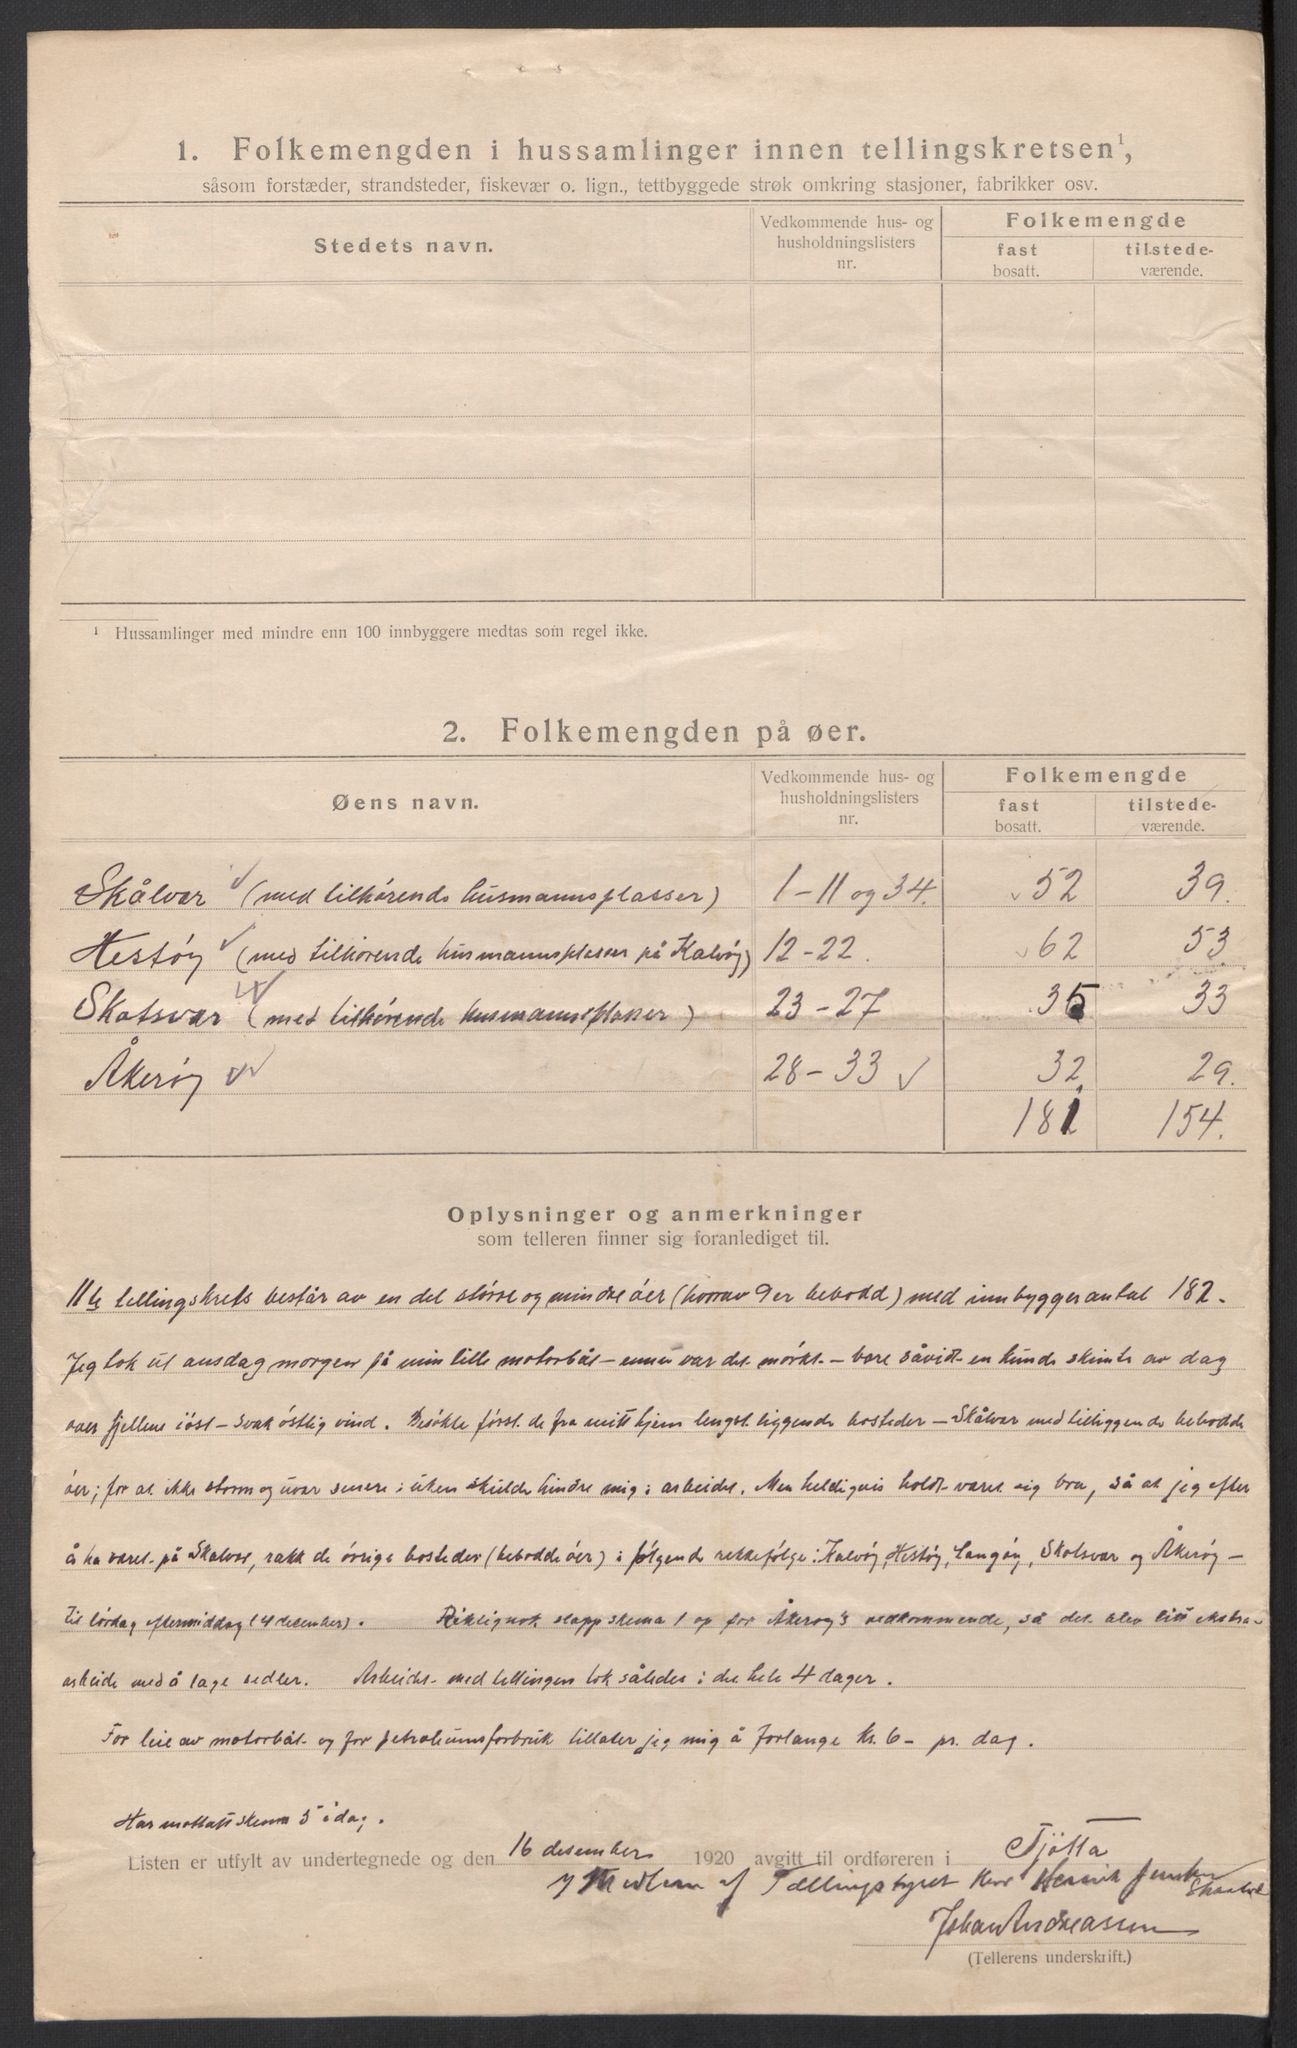 1. Folkemengden i hussamlinger innen tellingskretsen¹,
såsom forstæder, strandsteder, fiskevær o. lign., tettbyggede strøk omkring stasjoner, fabrikker osv.
Stedets navn.
Vedkommende hus- og husholdningslisters nr.
Folkemengde
fast bosatt.
tilstede-værende.
¹ Hussamlinger med mindre enn 100 innbyggere medtas som regel ikke.
2. Folkemengden på øer.
Øens navn.
Vedkommende hus- og husholdningslisters nr.
Folkemengde
fast bosatt.
tilstede-værende.
Skålvær (med tilhørende husmannsplasser) 1-11 og 34. 52 39.
Hestøy (med tilhørende husmannsplasser på Kalvøy) 12-22. 62 53
Skotsvær (med tilhørende husmannsplasser) 23-27 35 33
Åkerøy 28-33 32. 29.
181 154.
Oplysninger og anmerkninger
som telleren finner sig foranlediget til.
11te tellingskrets består av en del større og mindre öer (hvorav 9 er bebodd) med innbyggerantal 182.
Jeg tok ut onsdag morgen på min lille motorbåt - ennu var det mørkt - bare såvidt en kunde skimte av dag
over fjellene i öst - svak östlig vind. Besökte först de fra mitt hjem lengst liggende bosteder - Skålvær med tilliggende bebodde
öer; for at ikke storm og uvær senere i uken skulde hindre mig i arbeidet. Men heldigvis holdt været sig bra, så at jeg efter
å ha været på Skålvær, rakk de övrige bosteder (bebodde öer) i fölgende rekkefölge: Kalvöy, Hestöy, Langöy, Skotsvær og Åkeröy -
til lördag eftermiddag (4 december). Riktignok slapp skema 1 op for Åkeröy's vedkommende, så det blev litt ekstra-
arbeide med å lage sedler. Arbeidet med tellingen tok således i det hele 4 dager.
For leie av motorbåt og for petroleumsforbruk tillater jeg mig å forlange kr. 6- pr. dag.
Har mottatt skema 5 i dag.
Listen er utfylt av undertegnede og den 16 desember 1920 avgitt til ordføreren i Tjötta
Medlem af Tællingstyret Herr Henrik Jensen
Johan Andreassen
(Tellerens underskrift.)